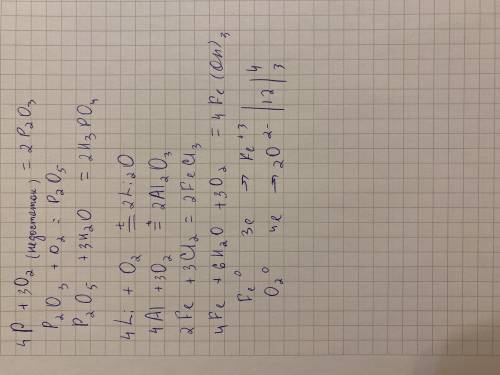 4P + 3O₂ (недостаток) = 2P₂O₃
P₂O₃ + O₂ = P₂O₅
P₂O₅ + 3H₂O = 2H₃PO₄
4Li + O₂ t= 2Li₂O
4Al + 3O₂ t= 2Al₂O₃
2Fe + 3Cl₂ = 2FeCl₃
4Fe + 6H₂O + 3O₂ = 4Fe(OH)₃
Fe⁰ 3e → Fe⁺³ | | 4
O₂⁰ 4e → 2O²⁻ | 12 | 3